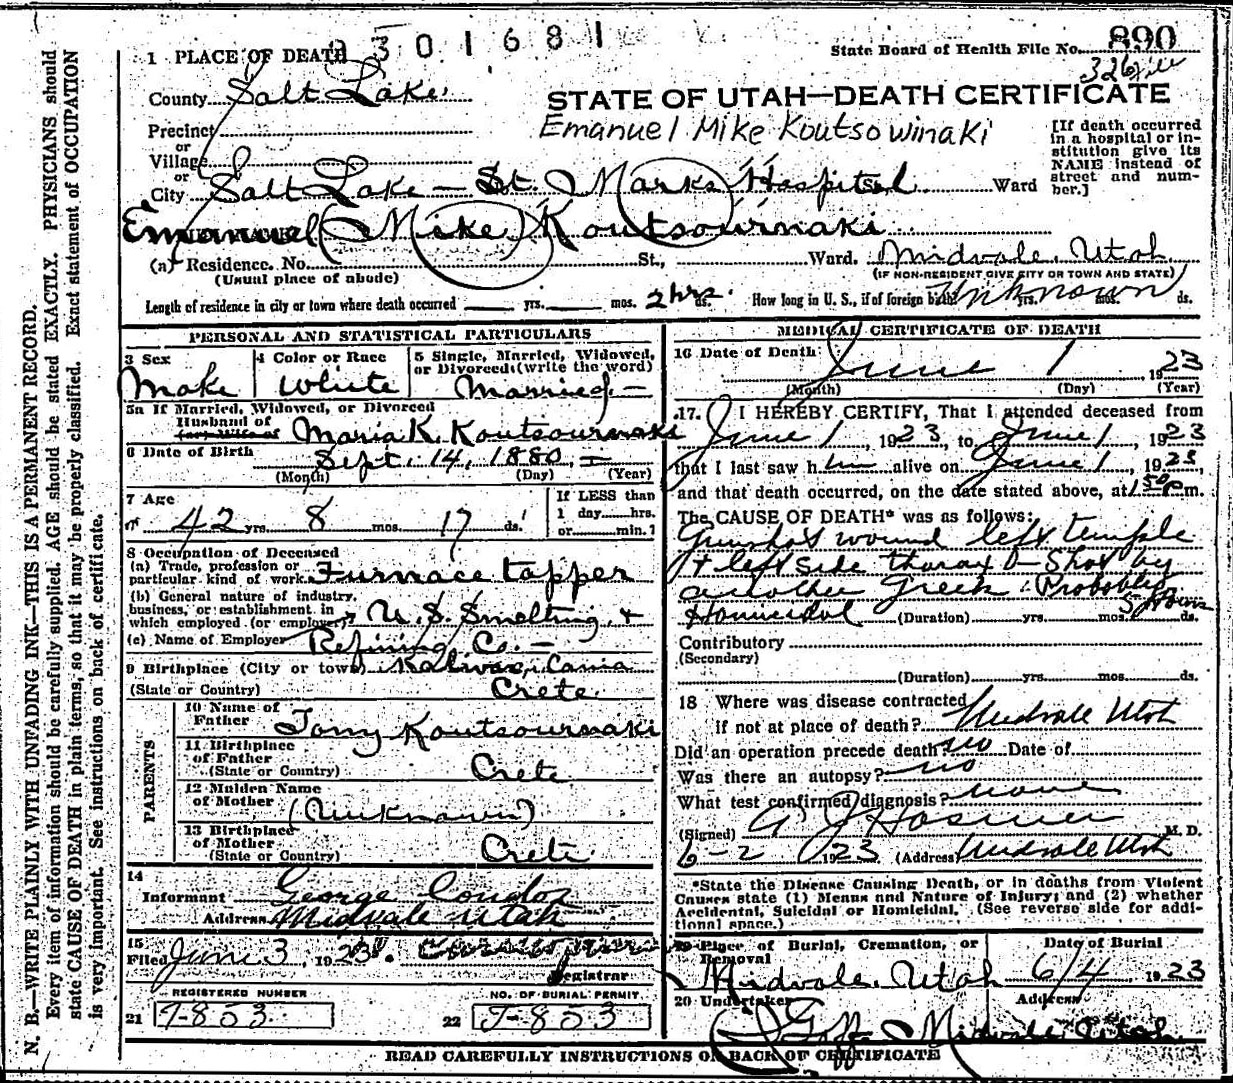 N. B.—WRITE PLAINLY WITH UNFADING INK—THIS IS A PERMANENT RECORD.
Every item of information should be carefully supplied. AGE should be stated EXACTLY. PHYSICIANS should
state CAUSE OF DEATH in plain terms, so that it may be properly classified. Exact statement of OCCUPATION
is very important. See instructions on back of certificate.
2301681
State Board of Health File No. 890
1 PLACE OF DEATH
County Salt Lake
STATE OF UTAH—DEATH CERTIFICATE
Emanuel Mike Koutsowinaki
Precinct
or
Village
or
City Salt Lake — St. Marks Hospital Ward
[If death occurred
in a hospital or in-
stitution give its
NAME instead of
street and num-
ber.]
Emanuel (Mike) Koutsournaki
(a) Residence. No. St., Ward. Midvale, Utah
(Usual place of abode) (IF NON-RESIDENT GIVE CITY OR TOWN AND STATE)
Length of residence in city or town where death occurred yrs. mos. 2 hrs. ds. How long in U. S., if of foreign birth? Unknown yrs. mos. ds.
PERSONAL AND STATISTICAL PARTICULARS
3 Sex 4 Color or Race 5 Single, Married, Widowed,
or Divorced (write the word)
Make White Married —
5a If Married, Widowed, or Divorced
Husband of
(or) Wife of Maria K. Koutsournaki
6 Date of Birth Sept. 14, 1880
(Month) (Day) (Year)
7 Age If LESS than
1 day hrs.
or min.?
42 yrs. 8 mos. 17 ds.
8 Occupation of Deceased
(a) Trade, profession or
particular kind of work Furnace tapper
(b) General nature of industry,
business, or establishment in
which employed (or employer) U. S. Smelting &
(c) Name of Employer Refining Co. —
9 Birthplace (City or town) Cania
(State or Country) Crete.
PARENTS
10 Name of
Father Tony Koutsournaki
11 Birthplace
of Father
(State or Country) Crete
12 Maiden Name
of Mother (Unknown)
13 Birthplace
of Mother
(State or Country) Crete
14
Informant George Condos
Address Midvale Utah
15
Filed June 3, 1923.
Registrar
REGISTERED NUMBER NO. OF BURIAL PERMIT
21 J-853 22 J-853
MEDICAL CERTIFICATE OF DEATH
16 Date of Death June 1 1923
(Month) (Day) (Year)
17. I HEREBY CERTIFY, That I attended deceased from
June 1, 1923, to June 1, 1923
that I last saw him alive on June 1, 1923,
and that death occurred, on the date stated above, at 1 50 p m.
The CAUSE OF DEATH* was as follows:
Gunshot wound left temple
+ left side thorax — Shot by
another Greek. Probably
Homicidal (Duration) yrs. mos. 5 hours ds.
Contributory
(Secondary)
(Duration) yrs. mos. ds.
18 Where was disease contracted
if not at place of death? Midvale Utah
Did an operation precede death? no Date of
Was there an autopsy? no
What test confirmed diagnosis? none
(Signed) Hosmer M. D.
6-2 1923 (Address) Midvale Utah
*State the Disease Causing Death, or in deaths from Violent
Causes state (1) Means and Nature of Injury; and (2) whether
Accidental, Suicidal or Homicidal. (See reverse side for addi-
tional space.)
19 Place of Burial, Cremation, or
Removal Date of Burial
Midvale, Utah 6/4 1923
20 Undertaker Address
Goff Midvale Utah.
READ CAREFULLY INSTRUCTIONS ON BACK OF CERTIFICATE